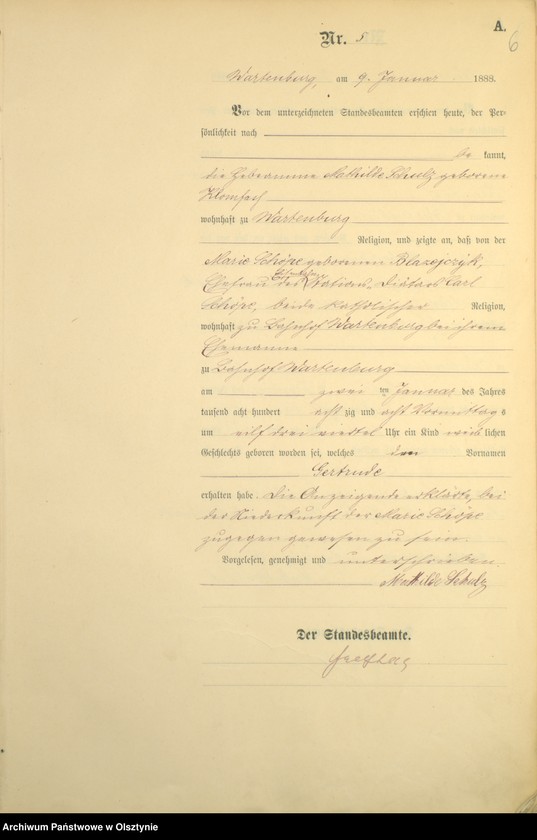 A.
6
Nr. 5
Wartenburg, am 9. Januar 1888.
Vor dem unterzeichneten Standesbeamten erschien heute, der Per-
sönlichkeit nach
be kannt,
die Hebeamme Mathilde Schulz geborene
Klomfass
wohnhaft zu Wartenburg
Religion, und zeigte an, daß von der
Marie Schöpe geborenen Blazejczyk,
Ehefrau des Stations-Diätars Carl
Schöpe, beide katholischer Religion,
wohnhaft zu Bahnhof Wartenburg bei ihrem
Ehemanne
zu Bahnhof Wartenburg
am zwei ten Januar des Jahres
tausend acht hundert acht zig und acht Vormittag s
um eilf drei viertel Uhr ein Kind weib lichen
Geschlechts geboren worden sei, welches den Vornamen
Gertrude
erhalten habe. Die Anzeigende erklärte, bei
der Niederkunft der Marie Schöpe
zugegen gewesen zu sein.
Vorgelesen, genehmigt und unterschrieben
Mathilde Schulz
Der Standesbeamte.
Freytag
Archiwum Państwowe w Olsztynie